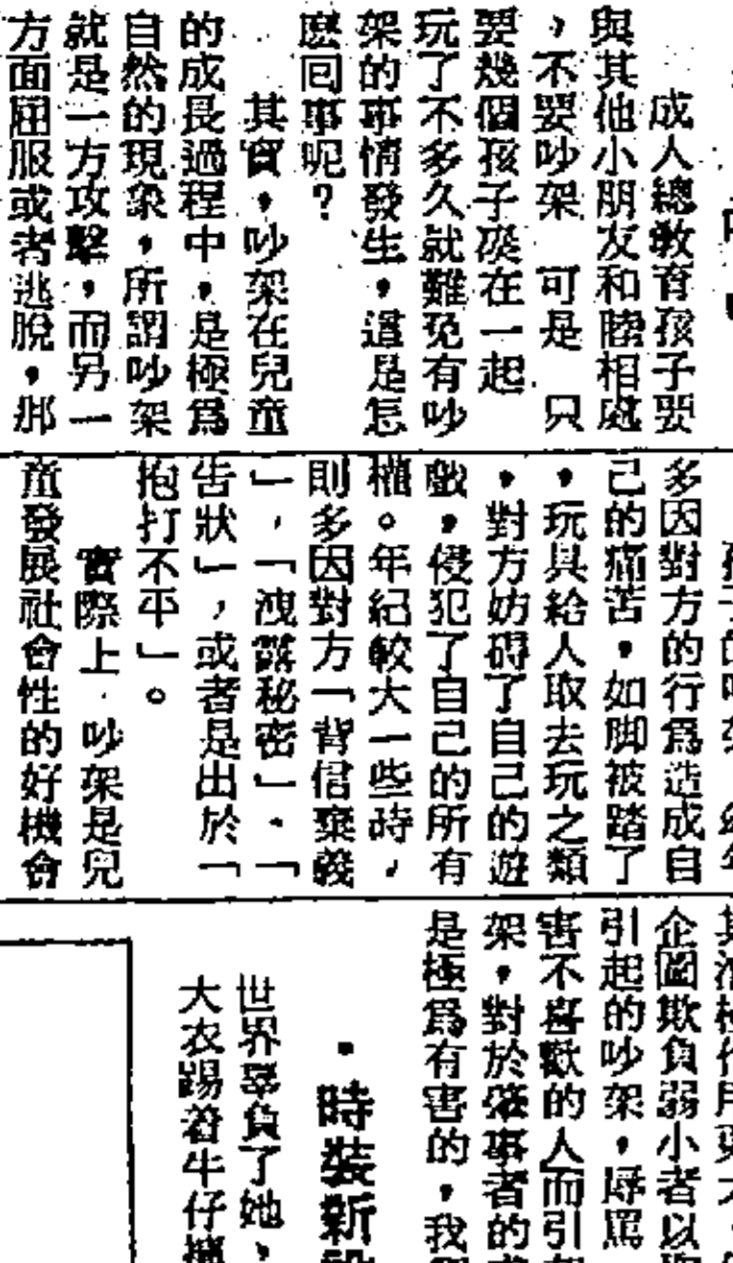 成人總教育孩子要
與其他小朋友和睦相處
，不要吵架 可是 只
要幾個孩子湊在一起
玩了不多久就難免有吵
架的事情發生，這是怎
麽回事呢？
其實，吵架在兒童
的成長過程中，是極爲
自然的現象，所謂吵架
就是一方攻擊，而另一
方面屈服或者逃脫，那
多因對方的行爲造成自
己的痛苦，如脚被踏了
，玩具給人取去玩之類
，對方妨碍了自己的遊
戲，侵犯了自己的所有
權。年紀較大一些時，
則多因對方「背信棄義
」，「洩露秘密」、「
告狀」，或者是出於「
抱打不平」。
實際上，吵架是兒
童發展社會性的好機會
企圖欺負弱小者以
引起的吵架，辱罵
害不喜歡的人而引
架，對於肇事者的
是極爲有害的，我
·時裝新
世界辜負了她，
大衣踢着牛仔